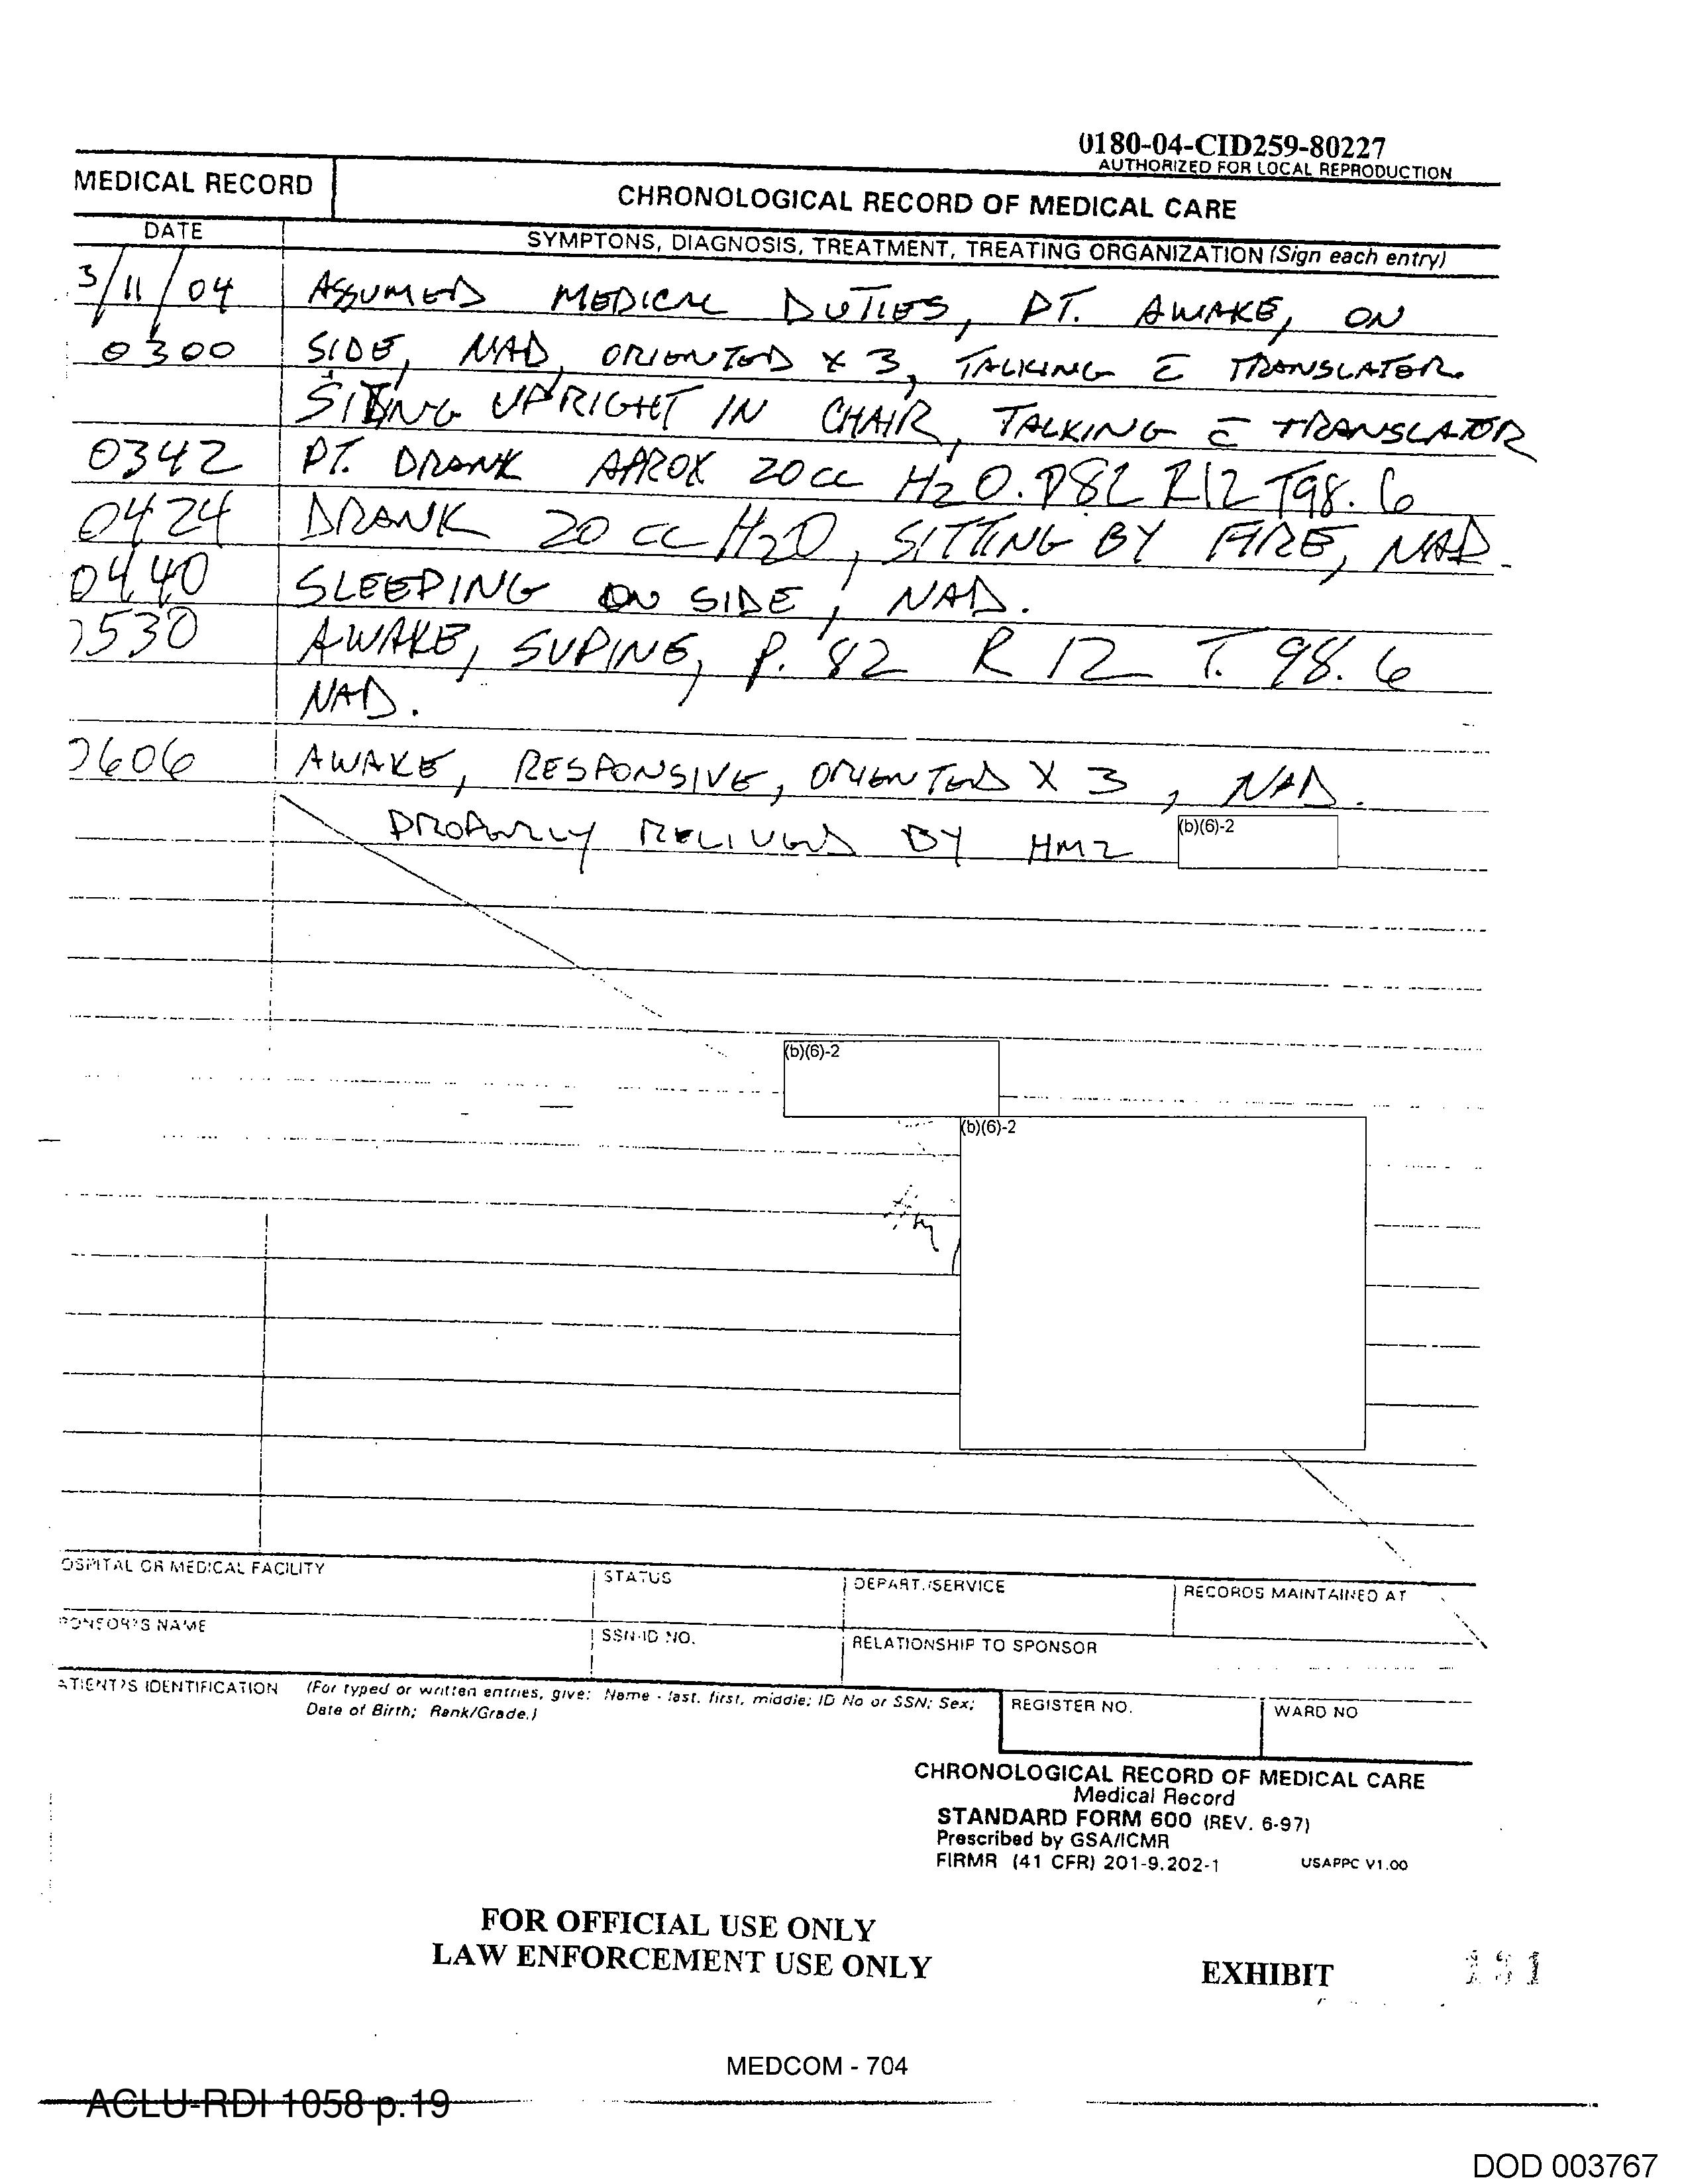 0180-04-CID259-80227
AUTHORIZED FOR LOCAL REPRODUCTION
MEDICAL RECORD
CHRONOLOGICAL RECORD OF MEDICAL CARE
DATE
SYMPTONS, DIAGNOSIS, TREATMENT, TREATING ORGANIZATION (Sign each entry)
3/11/04 ASSUMED MEDICAL DUTIES, PT. AWAKE, ON
0300 SIDE, NAD, ORIENTED X 3, TALKING C̄ TRANSLATER.
SITING UPRIGHT IN CHAIR, TALKING C̄ TRANSLATOR
0342 PT. DRANK APROX 20cc H2O. P82 R12 T98.6
0424 DRANK 20 CC H2O, SITTING BY FIRE, NAD.
0440 SLEEPING ON SIDE, NAD.
0530 AWAKE, SUPINE, P. 82 R 12 T. 98.6
NAD.
0606 AWAKE, RESPONSIVE, ORIENTED X 3, NAD.
PROPERLY RELIVED BY HM2 (b)(6)-2
(b)(6)-2
(b)(6)-2
OSPITAL OR MEDICAL FACILITY STATUS DEPART./SERVICE RECORDS MAINTAINED AT
PONSOR'S NAME SSN/ID NO. RELATIONSHIP TO SPONSOR
ATIENT'S IDENTIFICATION (For typed or written entries, give: Name - last, first, middle; ID No or SSN; Sex; REGISTER NO. WARD NO
Date of Birth; Rank/Grade.)
CHRONOLOGICAL RECORD OF MEDICAL CARE
Medical Record
STANDARD FORM 600 (REV. 6-97)
Prescribed by GSA/ICMR
FIRMR (41 CFR) 201-9.202-1 USAPPC V1.00
FOR OFFICIAL USE ONLY
LAW ENFORCEMENT USE ONLY
EXHIBIT
MEDCOM - 704
ACLU-RDI 1058 p.19
DOD 003767